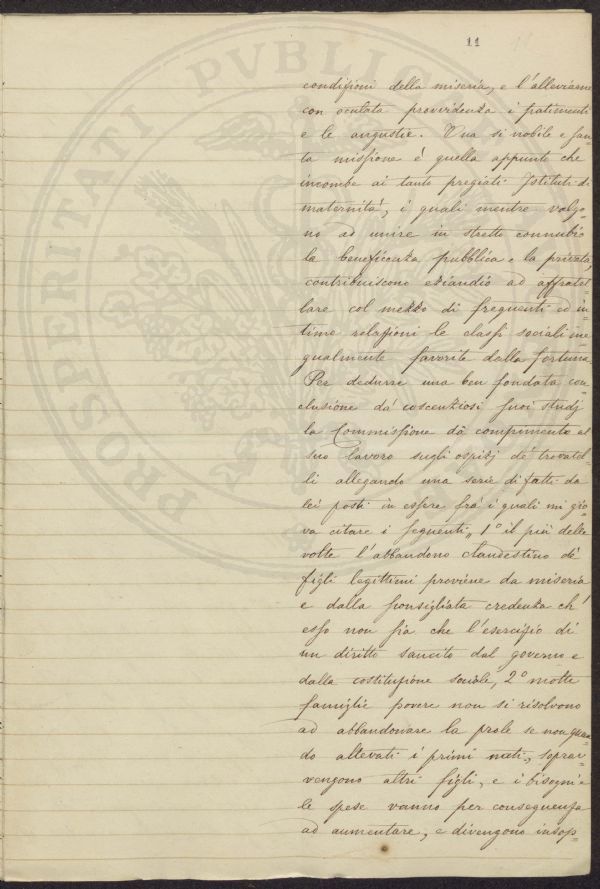 11
condizioni della miseria, e l'alleviarne
con oculata provvidenza i patimenti
e le angustie. Una si nobile e san-
ta missione é quella appunto che
incombe ai tanto pregiati Istituti di
maternitá, i quali mentre valgo-
no ad unire in stretto connubio
la beneficenza pubblica e la privata,
contribuiscono eziandió ad affratel-
lare col mezzo di frequenti ed in-
time relazioni le classi sociali ine-
gualmente favorite dalla fortuna.
Per dedurre una ben fondata con-
clusione da' coscenziosi suoi studj
la Commissione dá compimento al
suo lavoro sugli ospizj de' trovatel-
li allegando una serie di fatti da
lei posti in essere frá i quali mi gio-
va citare i seguenti „ 1° il piú delle
volte l'abbandono clandestino de'
figli legittimi proviene da miseria
e dalla sconsigliata credenza ch'
esso non sia che l'esercizio di
un diritto sancito dal governo e
dalla costituzione sociale, 2° molte
famiglie povere non si risolvono
ad abbandonare la prole se non quan-
do allevati i primi nati, soprav-
vengono altri figli, e i bisogni e
le spese vanno per conseguenza
ad aumentare, e divengono insop-
PROSPERITATI PVBLICAE